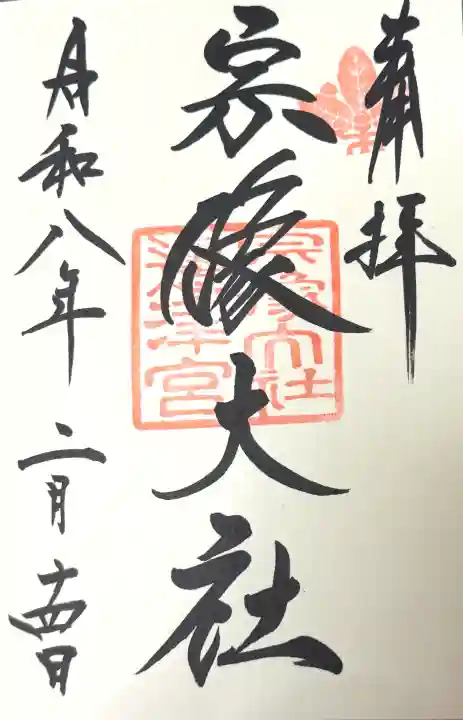 奉拝
宗像大社
宗像大社
津宮
令和八年 二月十四日